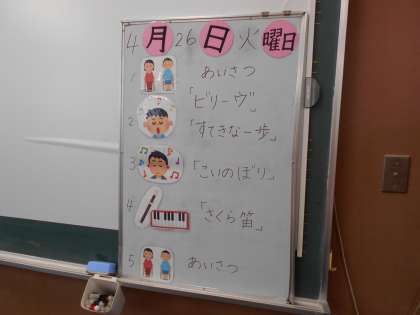 4月26日火曜日
1 あいさつ
「ビリーヴ」
2 「すてきな一歩」
3 「こいのぼり」
4 「さくら笛」
5 あいさつ